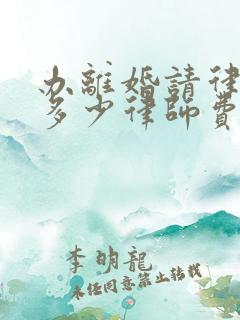 办離婚請律
多少律師費
李明龍
未经同意禁止转载